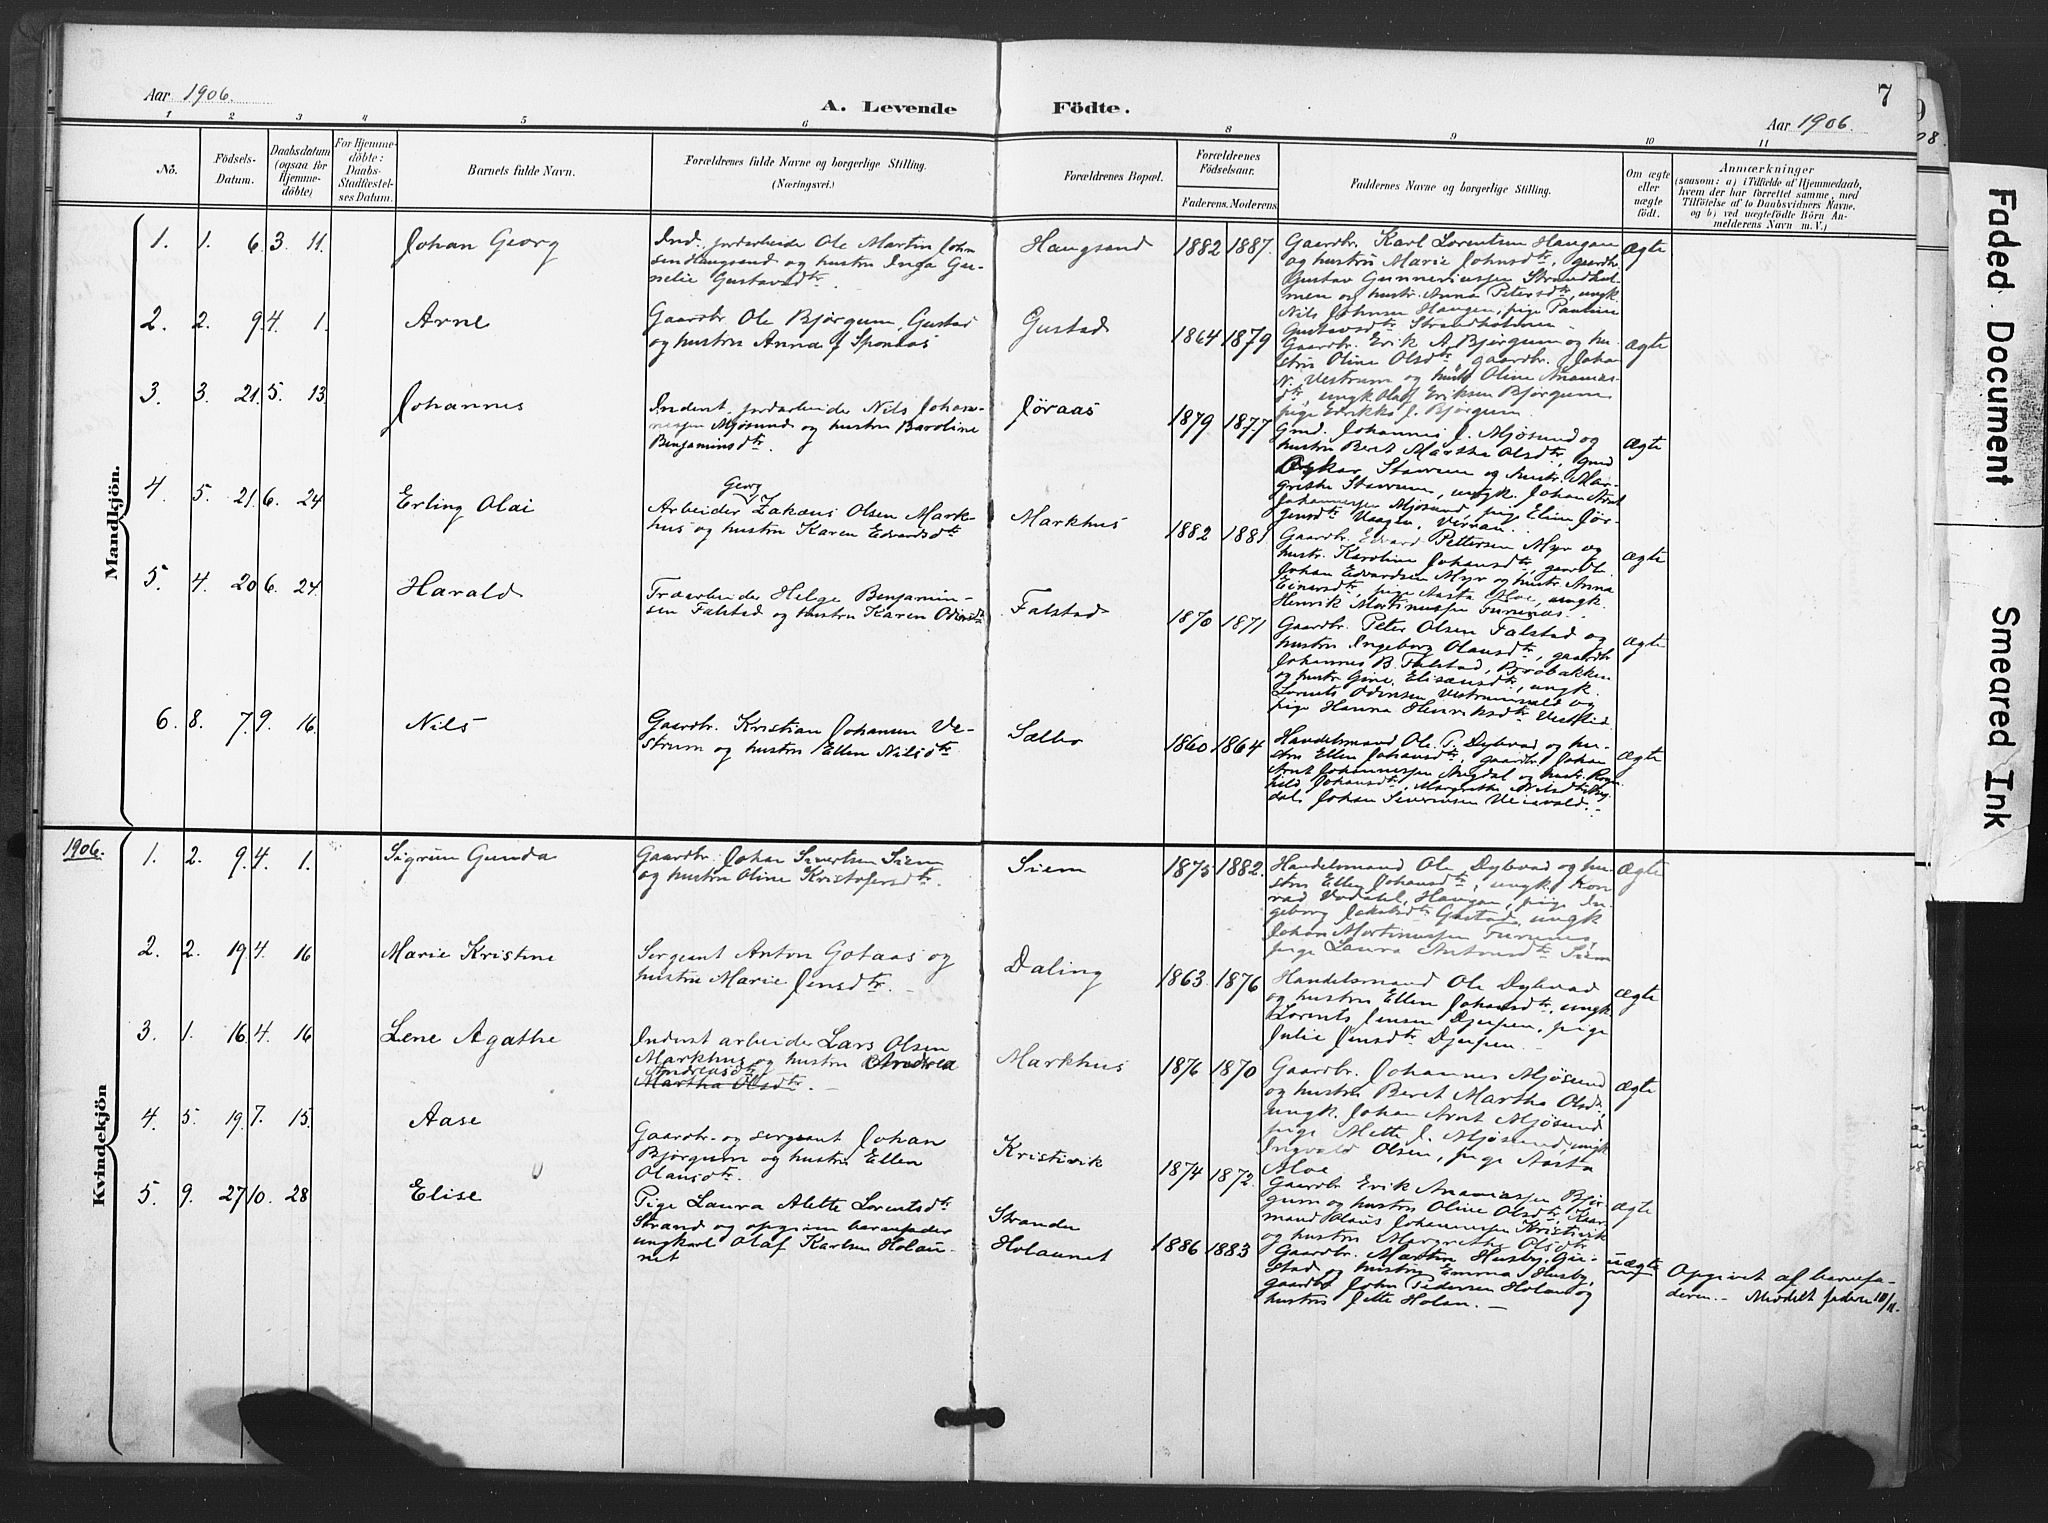 Aar 1906.
A. Levende Födte.
7
Aar 1906.
1 2 3 4 5 6 8 9 10 11
No.
Födsels-
Datum.
Daabsdatum
(ogsaa for
Hjemme-
döbte)
For Hjemme-
döbte:
Daabs-
Stadfæstel-
ses Datum.
Barnets fulde Navn.
Forældrenes fulde Navne og borgerlige Stilling.
(Næringsvei.)
Forældrenes Bopæl.
Forældrenes
Födselsaar.
Faderens. Moderens.
Faddernes Navne og borgerlige Stilling.
Om ægte
eller
uægte
födt.
Anmærkninger
(saasom: a) i Tilfælde af Hjemmedaab,
hvem der har forrettet samme, med
Tilföielse af to Daabsvidners Navne.
og b) ved uægtefödte Börn An-
melderens Navn m.V.)
Mandkjön.
1. 1. 6. 3. 11. Johan Georg
Ind. jordarbeide Ole Martin John
senHaugsand og hustru Inga Gu-
nelie Gustavsdtr.
Haugsand 1882 1887.
Gaardbr. Karl Lorentsen Haugan
og hustru Marie Johnsdtr, gaardbr.
Gustav Gunneriussen Strandhol-
men og hustr. Anna Petersdtr, ungk.
Nils Johnsen Haugen, pige Pauline
Gustavsdtr Strandholmen
Ægte
2. 2. 9. 4. 1. Arne
Gaardbr. Ole Bjørgum, Gustad
og hustru Anna f. Sponaas
Gustad 1864 1879
Gaardbr. Erik A. Bjørgum og hu-
stru Oline Olsdtr, gaardbr. Johan
N. Vestrum og hustr Oline Ananias-
dtr, ungk Olaf Eriksen Bjørgum
pige Edrikke J. Bjørgum.
Ægte
3. 3. 21. 5. 13. Johannes
Inderst, jordarbeider Nils Johan-
nesen Mjøsund og hustru Baroline
Benjaminsdtr.
Jøraas 1879 1877
Gmd. Johannes J. Mjøsund og
hustru Beret Martha Olsdtr, gmd
Oskar Stavrum og hustr. Mar-
grethe Stavrum, ungk. Johan Arnt
Johannessen Mjøsund, pige Elina Jør-
gensdtr Vaagen, Verran
Ægte
4. 5. 21. 6. 24 Erling Olai
Georg
Arbeider Zakæus Olsen Mark-
hus og hustru Karen Edvardsdtr
Markhus 1882 1881
Gaardbr. Edvard Pettersen Myr og
hustr. Karoline Johansdtr, gaardbr.
Johan Edvardsen Myr og hustr. Anna
Einarsdtr, pige Aasta Moe, ungk.
Henrik Mortinussen Furunes.
Ægte
5. 4. 20 6. 24. Harald
Træarbeider Helge Benjamin-
sen Falstad og hustru Karen Odinsdtr
Falstad 1870 1871
Gaardbr. Peter Olsen Falstad og
hustru Ingeborg Olausdtr, gaardbr
Johannes B. Falstad, Brobakken
og hustr Gine Elisæusdtr, ungk.
Lorents Odinsen Vestrumvald og
pige Hanna Henriksdtr
Ægte
6. 8. 7. 9. 16. Nils
Gaardbr. Kristian Johansen Ve-
strum og hustru Ellen Nilsdtr
Sælbo 1860 1864
Handelsmand Ole T. Dybvad og hu-
stru Ellen Johansdtr, gaardbr Johan
Arnt Johannessen Augdal og hustr. Rag-
hild Johansdtr, Margrethe Nilsdtr
dal, Johan Severinsen Veisvald. -
Ægte
1906.
Kvindekjön
1. 2. 9. 4. 1. Sigrun Gunda
Gaardbr. Johan Sivertsen Siem
og hustru Oline Kristofersdtr.
Siem 1875 1882.
Handelsmand Ole Dybvad og hu-
stru Ellen Johansdtr, ungk. Kon-
rad Vodahl, Haugan, pige In-
geborg Jakobsdtr Gustad, ungk
Johan Mortinussen Furunes,
pige Laura Antonsdtr Siem
Ægte
2. 2. 19. 4. 16 Marie Kristine
Sergeant Anton Gotaas og
hustru Marie Jensdtr. -
Daling 1863. 1876
Handelsmand Ole Dybvad
og hustru Ellen Johansdtr, ungk.
Lorents Jensen Djupen, pige
Julie Jensdtr Djupen. -
Ægte
3. 1. 16. 4. 16 Lene Agathe
Inderst arbeider Lars Olsen
Markhus og hustru Andrea
Andreasdtr
Martha Olsdtr. -
Markhus 1876 1870
Gaardbr. Johannes Mjøsund
og hustru Beret Martha Olsdtr,
ungk. Johan Arnt Mjøsund
pige Mette J. Mjøsund, ungk
Ingvald Olsen, pige Aasta
Moe.
Ægte
4. 5. 19. 7. 15. Aase
Gaardbr. og sergeant Johan
Bjørgum og hustru Ellen
Olausdtr.
Kristivik 1874 1872.
Gaardbr. Erik Ananiassen Bjør-
gum og hustru Oline Olsdtr, Kaar-
mand Klaus Johannessen Kristivik
og hustru Margrethe Olsdtr
Ægte
5. 9. 27 10. 28 Elise
Pige Laura Alette Lorentsdtr.
Strand og opgiven barnefader
ungkarl Olaf Karlsen Holau-
net
Stranden
Holaunet 1886 1883
Gaardbr. Martin Husby, Gu-
stad og hustru Emma Husby,
gaardbr John Pedersen Holan og
hustru Jette Holan. -
uægte
Opgivet af barnefa-
deren. - Meddelt federe 10/11.
Faded Document
Smeared Ink